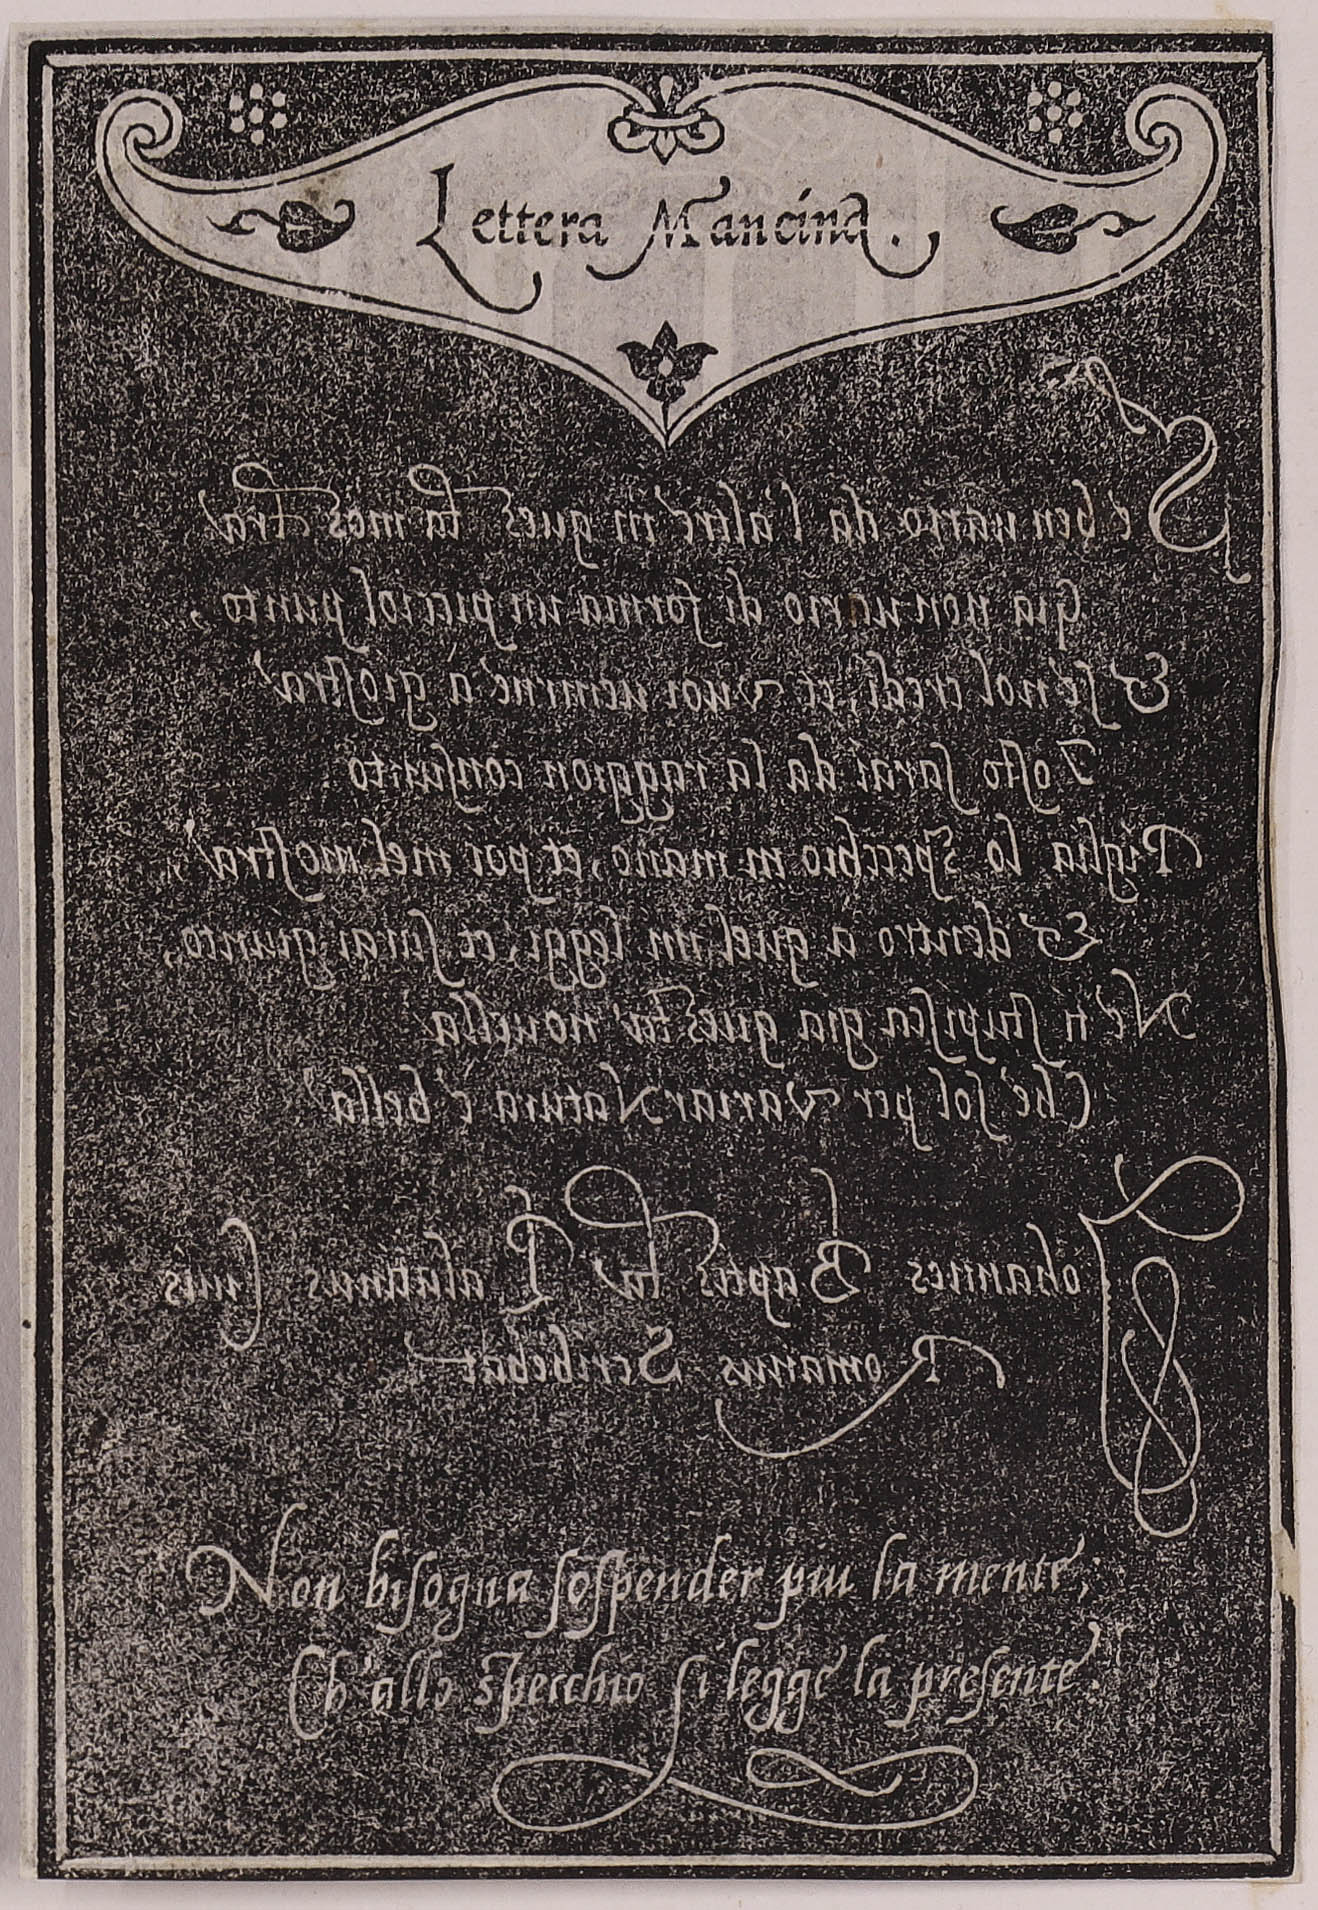 Lettera Mancina.
S'é ben uario da l'altre in ques ta mos tra
Gia non uario di forma un picciol punto,
Et se nol credi, et vuoi uenirne à giostra
Tosto sarai da la raggion consunto
Piglia lo specchio in mano, et poi mel mostra,
Et dentro a quel mi leggi, et sarai giunto,
Ne ti stupisca gia ques ta nouella
Che sol per variar Natura è bella
Iohannes Baptis ta Palatinus Ciuis
Romanus Scribebat
Non bisogna sospender piu la mente,
Ch'allo specchio si legge la presente.